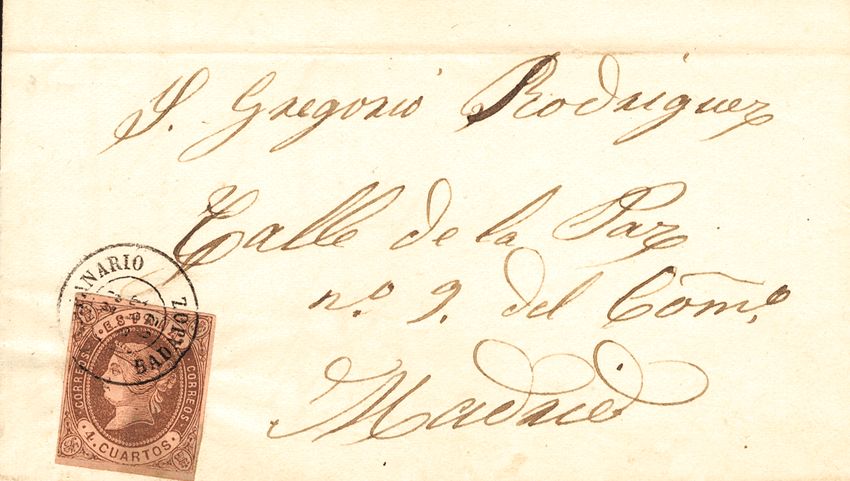 S. Gregorio Rodriguez
Calle de la Paz
nº 9. del Com̃º
Madrid
BADAJOZ
ESPAÑA
CORREOS
CORREOS
4 CUARTOS